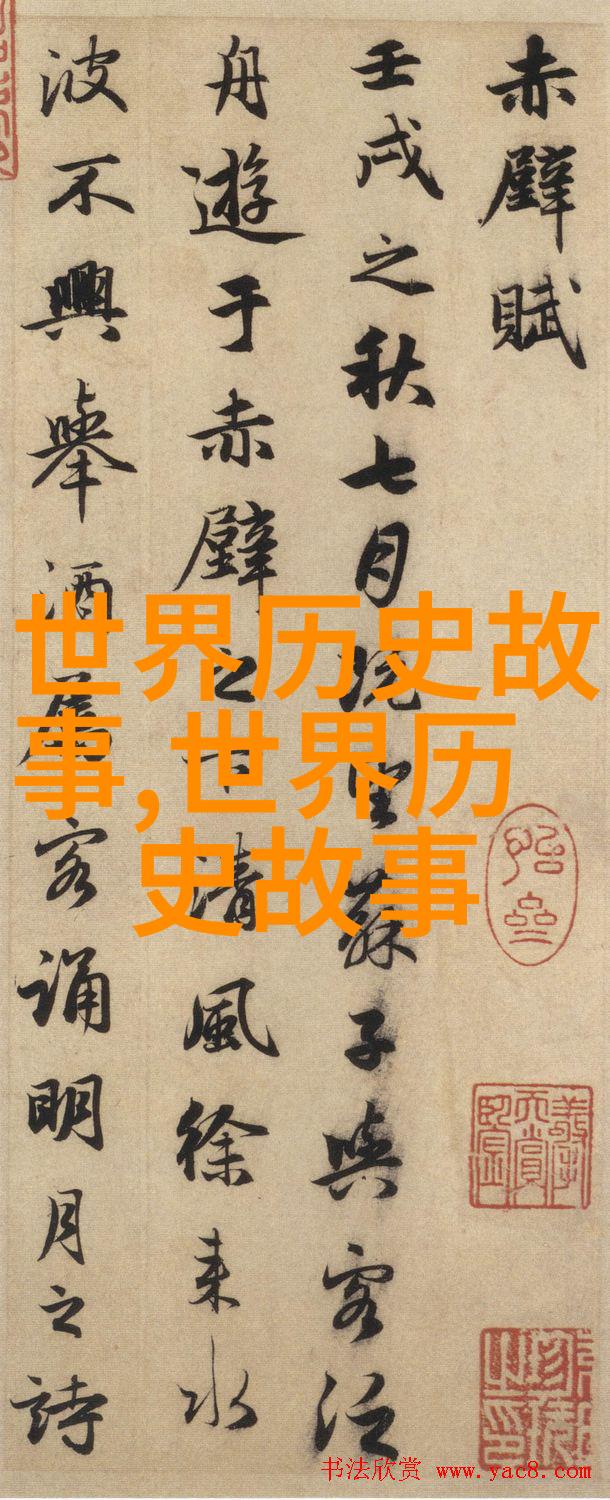 赤壁賦
壬戌之秋七月既望蘇子與客泛
舟遊于赤壁之下清風徐来水
波不興舉酒属客誦明月之詩
世界历史故
事,世界历
史故事
书法欣赏 www.yac8.com